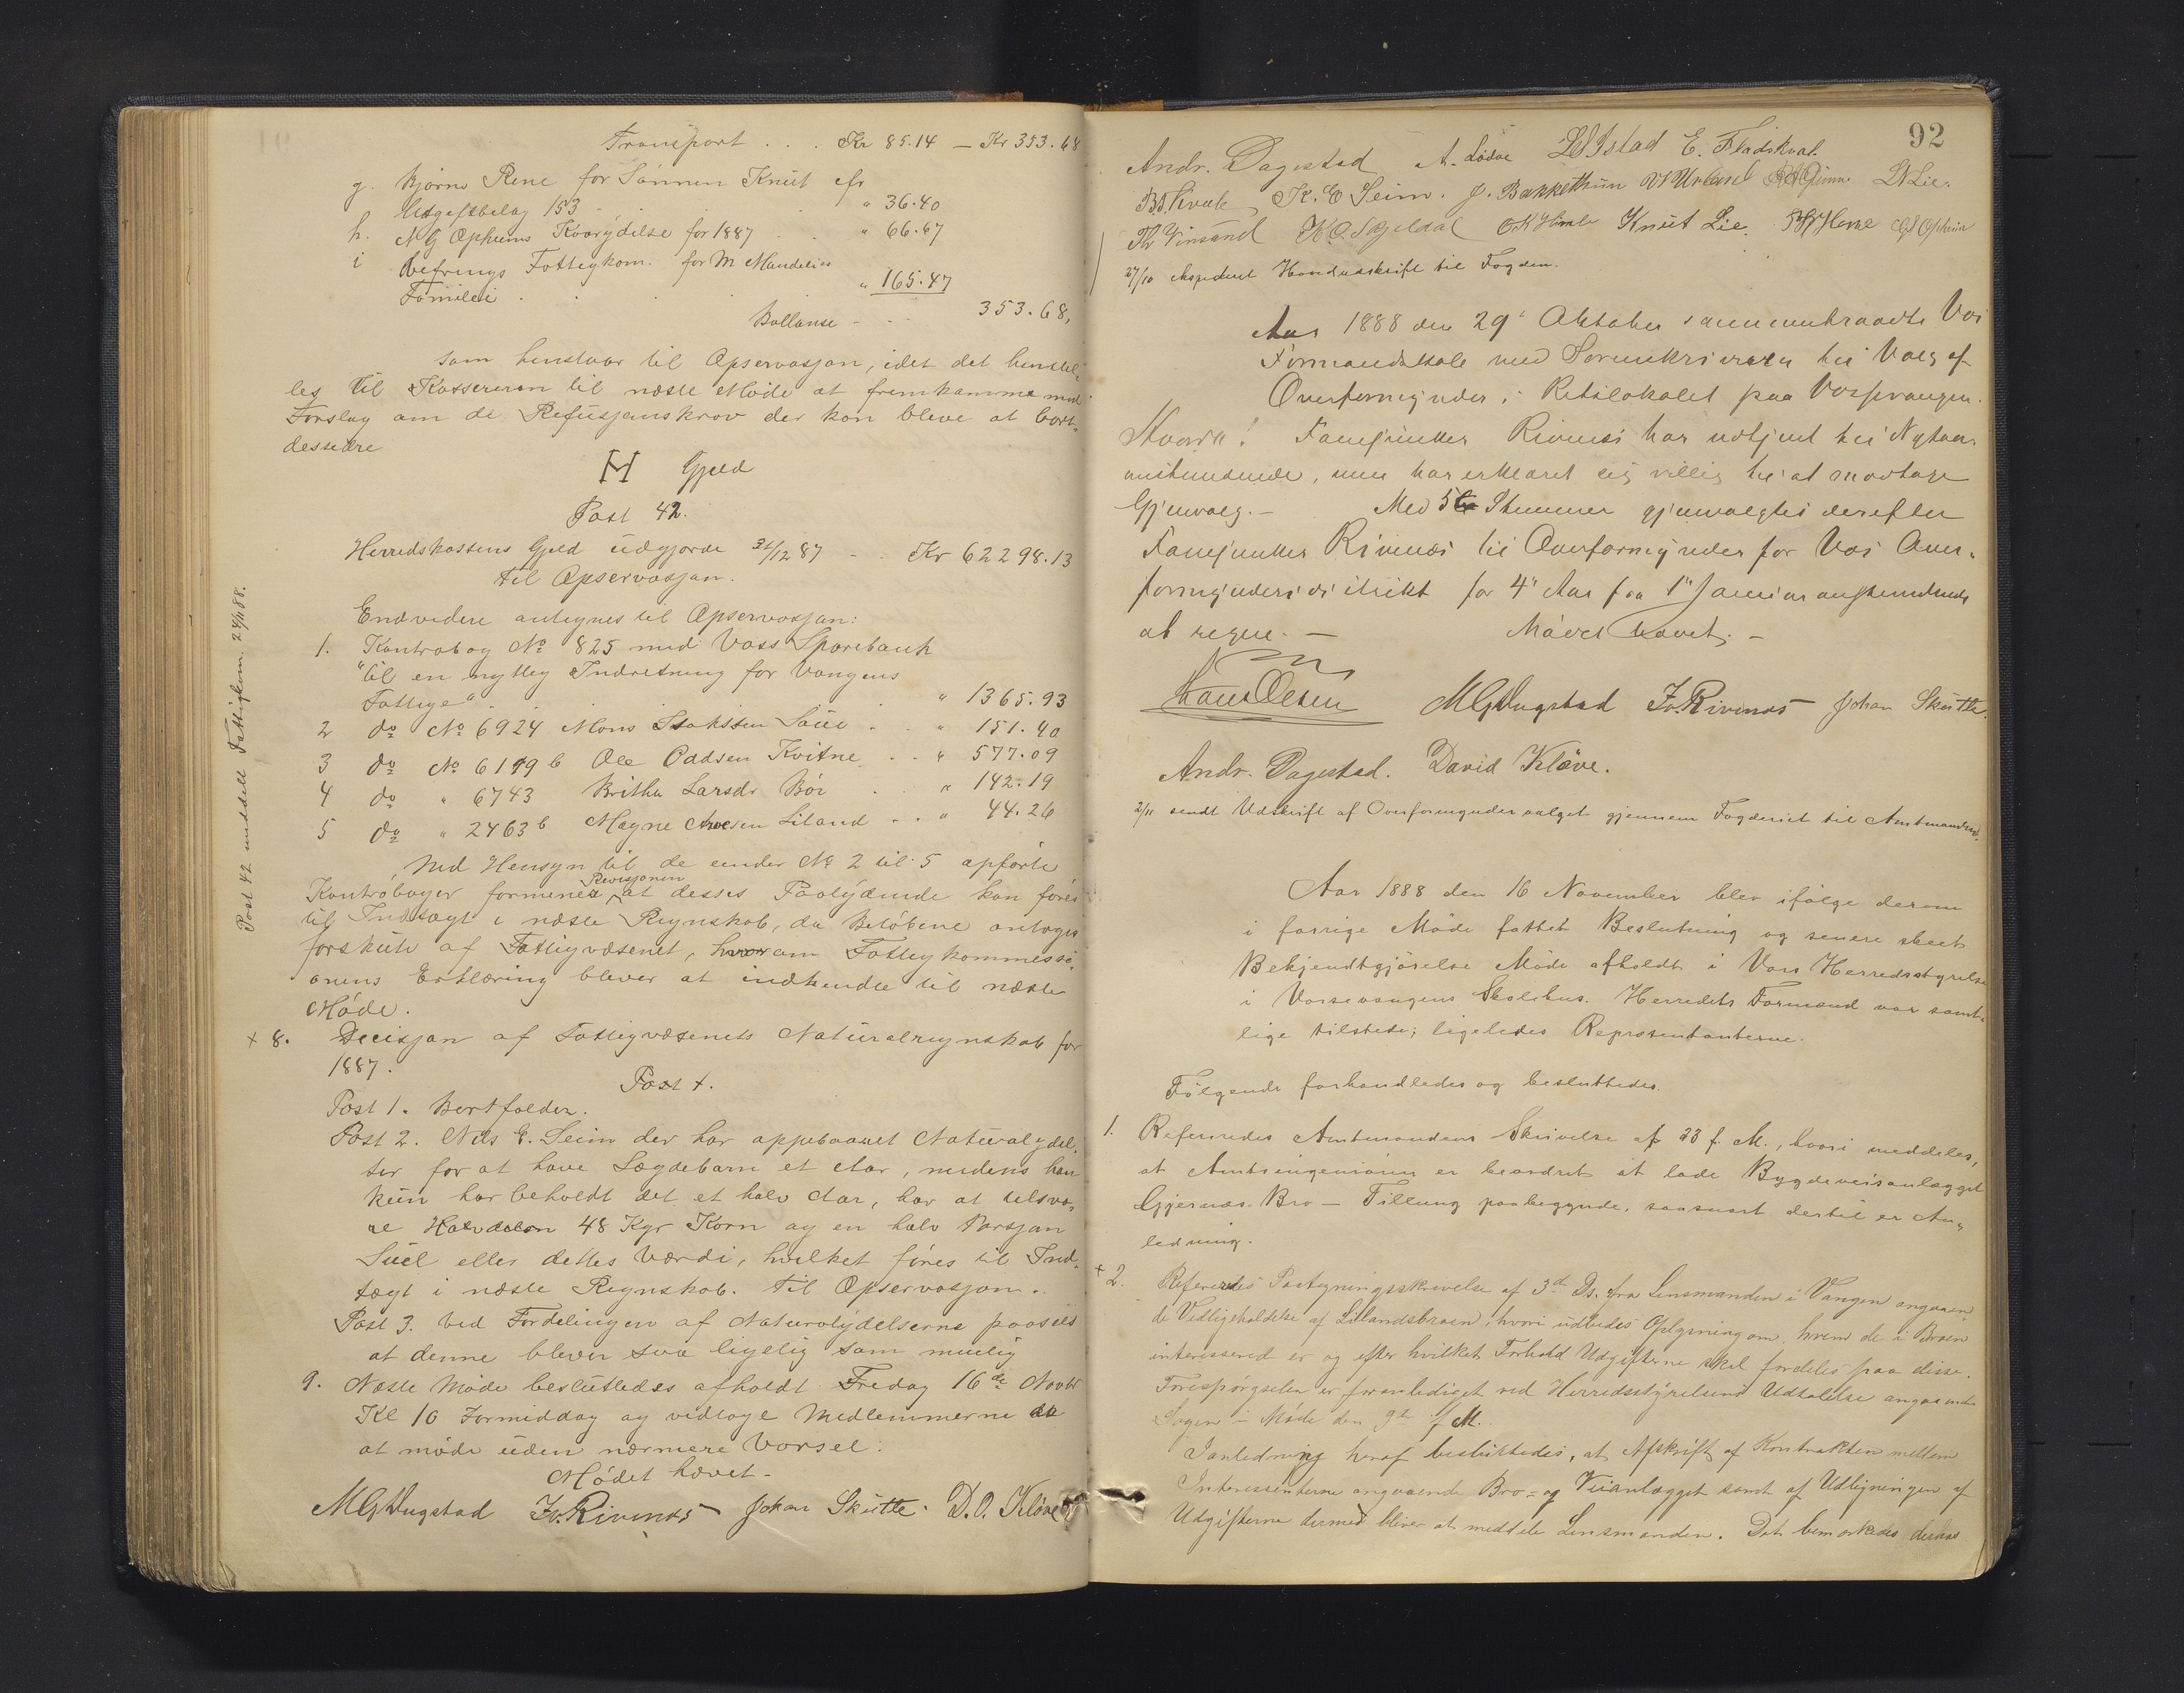 Transport . . . Kr 85.14 — Kr 353.68
g. Bjørne Rene for Sønnen Knut efr
Udgiftsbelag 153 . . . " 36.40
h. N G Ophums Kaarydelse for 1887 . . " 66.67
i Befrings Fattigkom. for M Mandelias
Familie . . . . " 165.47
Ballanse - - - 353.68,
som henstaar til Opservasjon, idet det henstil-
les til Kassereren til næste Møde at fremkomme med
Forslag om de Refusjonskrav der kan bleve at bort-
dessidere
H Gjeld
Post 42.
Herredskassens Gjeld udgjorde 31/12 87 - . Kr 62298.13
til Opservasjon.
Endvidere antegnes til Opservasjon:
1. Kontrabog No 825 med Voss Sparebank
"til en nyttig Indretning for Vangens
Fattige" . . . " 1365.93
2 do No 6924 Mons Isaksen Saue . . " 151.40
3 do No 6179 b Ole Oddsen Kvitne . . " 577.09
4 do " 6743 Britha Larsdr Bør . . " 142.19
5 do " 2463 b Magne Aresen Liland . . " 44.26
Med Hensyn til de under No 2 til 5 opførte
Kontrabøger formenes Revisjonen at desses Paalydende kan føres
til Indtægt i næste Regnskab, da Beløbene antages
forskute af Fattigvæsenet, hvorom Fattigkommissi-
onens Erklæring blever at indhendte til næste
Møde.
+ 8. Decisjon af Fattigvæsenets Naturalregnskab for
1887.
Post +.
Post 1. Bortfalder.
Post 2. Nils E. Seim der har oppebaaret Naturalydel-
ser for at have Lægdebarn et Aar, medens han
kun har beholdt det et halv Aar, har at telsva-
re Halvdelen 48 Kgr Korn og en halv Porsjon
Suel eller dettes Værdi, hvilket føres til Ind-
tægt i næste Regnskab. Til Opservasjon.
Post 3. Ved Fordelingen af Naturalydelserne paasees
at denne blever saa ligelig som muelig
9. Næste Møde besluttedes afholdt Fredag 16de Novbr
Kl 10 Formiddag og vedtoge Medlemmerne da
at møde uden nærmere Varsel.
Mødet hævet.
MGDugstad Iv.Rivenæs Johan Skutle. D.O. Kløve
Post 42 meddelt Fattigkom. 24/11 88.
92
Andr. Dagestad A. Lødve LOIstad E. Fladekval.
B.O.Kvale K. E Seim. J. Bakkethun LN Lie.
Th Vinsand K.O. Skjeldal O K Himle Knut Lie. GS Ophein
27/10 ekspederet Hovedudskrift til Fogden.
Aar 1888 den 29de Oktober sammentraadte Vos
Formandskab med Sorenskriveren til Valg af
Overformynder i Retslokalet paa Vossevangen.
Hvorda! Fanejunker Rivenæs har udtjent til Nytaar
anstundende, men har erklæret sig villig til at modtage
Gjenvalg. — Med 5 Stemmer gjenvalgtes derefter
Fanejunker Rivenæs til Overformynder for Vos Over-
formynderidistrikt for 4 Aar fra 1ste Januar anstundende
at regne. — Mødet hævet. —
Hans Olsen MGDugstad Iv.Rivenæs Johan Skutle.
Andr. Dagestad. David Kløve.
2/11 sendt Udskrift af Overformyndervalget gjennem Fogderiet til Amtmanden.
Aar 1888 den 16 November blev ifølge derom
i forrige Møde fattet Beslutning og senere skeet
Bekjendtgjørelse Møde afholdt i Vors Herredsstyrelse
i Vorsevangens Skolehus. Herredets Formænd var samt-
lige tilstede; ligeledes Repræsentanterne.
Følgende forhandledes og besluttedes.
1. Refereredes Amtmandens Skrivelse af 23 f. M., hvori meddeles,
at Amtsingeniøren er beordret at lade Bygdeveisanlægget
Gjernæs Bro — Tillung paabegynde, saasnart dertil er An-
ledning.
+ 2. Refereredes Paategningsskrivelse af 3de Ds. fra Lensmanden i Vangen angaaen-
de Vedligeholdelse af Lilandsbroen, hvori udbedes Oplysning om, hvem de i Broen
interessered er og efter hvilket Forhold Udgifterne skal fordeles paa disse.
Forespørgselen er foranlediget ved Herredsstyrelsens Udtalelse angaaende
Sagen i Møde den 9de f. M.
I anledning heraf besluttedes, at Afskrift af Kontrakten mellem
Interessenterne angaaende Bro- og Veianlægget samt af Udligningen af
Udgifterne dermed bliver at meddele Lensmanden. Det bemærkedes derhos